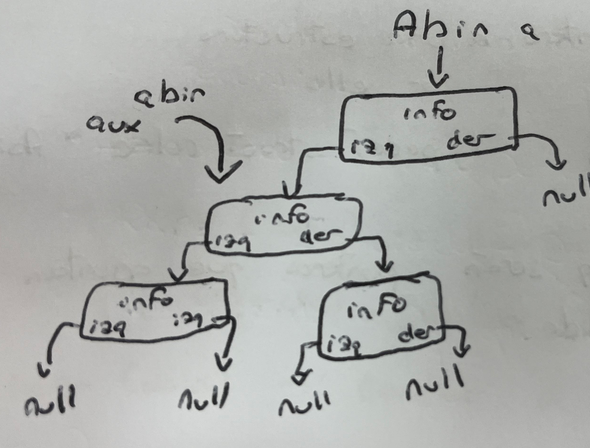 Abin a
abin
aux
info
izq der
null
info
izq der
info
izq izq
info
izq der
null
null
null
null